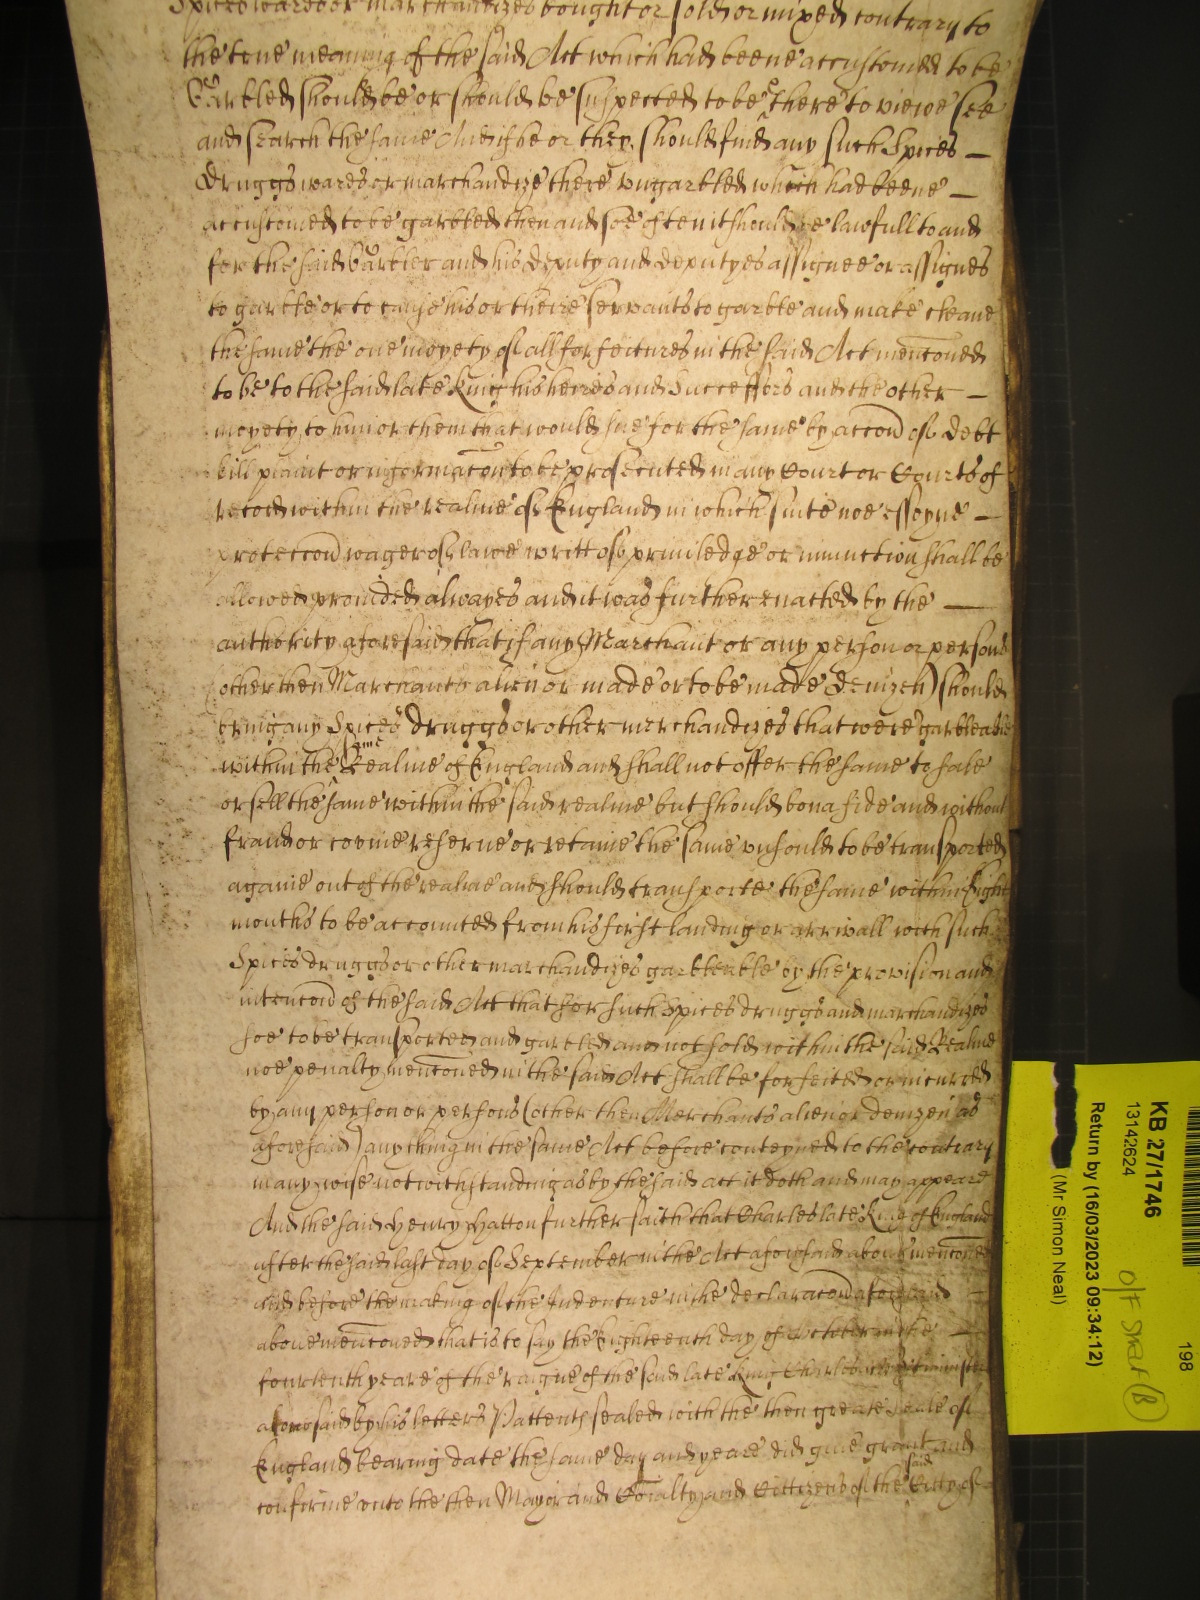 Spices wares or marchandizes bought or sold or mixed contrary to
the true meaning of the said Act which had beene accustomed to be
Garbled should be or should be suspected to be There to viewe see
and search the same And if he or they should find any such Spices —
Druggs wares or marchandize there ungarbled which had beene —
accustomed to be garbled then and soe often it should be lawfull to and
for the said Garbler and his deputy and deputyes assignee or assignes
to garble or to cause his or theire servants to garble and make cleane
the same the one moyety of all forfeitures in the said Act menconed
to be to the said late King his heires and Successors and the other —
moyety to him or them that would sue for the same by accon of debt
bill plaint or informacon to be prosecuted in any Court or Courts of
record within the realme of England in which suite noe essoyne —
proteccon wager of lawe writt of priviledge or iniunction shall be
allowed provided alwayes and it was further enacted by the —
authority aforesaid that if any Marchant or any person or persons
(other then Marchants alien or made or to be made Denizen) should
bring any Spices druggs or other merchandizes that were garbleable
within the same Realme of England and shall not offer the same to sale
or sell the same within the said realme but should bona fide and without
fraud or covine reserve or retaine the same unsould to be transported
againe out of the realme and should transporte the same within Eight
months to be accounted from his first landing or arrivall with such
Spices druggs or other marchandizes garbleable by the provision and
intencon of the said Act that for such Spices druggs and marchandizes
soe to be transported and garbled and not sold within the said Realme
noe penalty menconed in the said Act shall be forfeited or incurred
by any person or persons (other then Merchants alien or denizen as
aforesaid) any thing in the same Act before conteyned to the contrary
in any wise notwithstanding as by the said act it doth and may appeare
And the said Henry Hatton further saith that Charles late King of England
after the said last day of September in the Act aforesaid above menconed
and before the making of the Indenture in the declaracon aforesaid —
above menconed that is to say the Eighteenth day of October in the —
fourteenth yeare of the raigne of the said late King Charles att Westminster
aforesaid by his letters Pattents sealed with the then greate Seale of
England bearing date the same day and yeare did give grant and
confirme unto the then Mayor and Coialty and Cittizens of the said Citty of
KB 27/1746
13142624
Return by (16/03/2023 09:34:12)
(Mr Simon Neal)
198